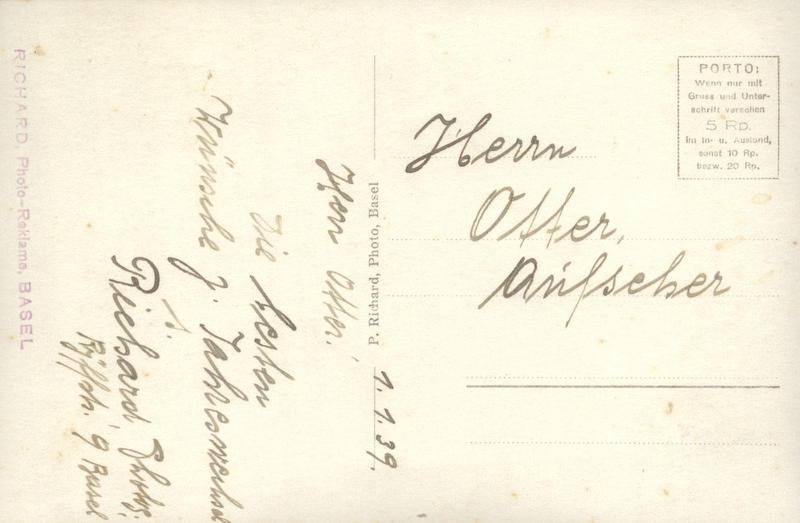 Herrn Otter!
Die besten
Wünsche z. Jahreswechsel
Richard Photo
Basel
1.1.39.
P. Richard, Photo, Basel
RICHARD, Photo-Reklame, BASEL
Herrn
Otter,
Aufseher
PORTO:
Wenn nur mit
Gruss und Unter-
schrift versehen
5 RP.
im In- u. Ausland,
sonst 10 Rp.
bezw. 20 Rp.